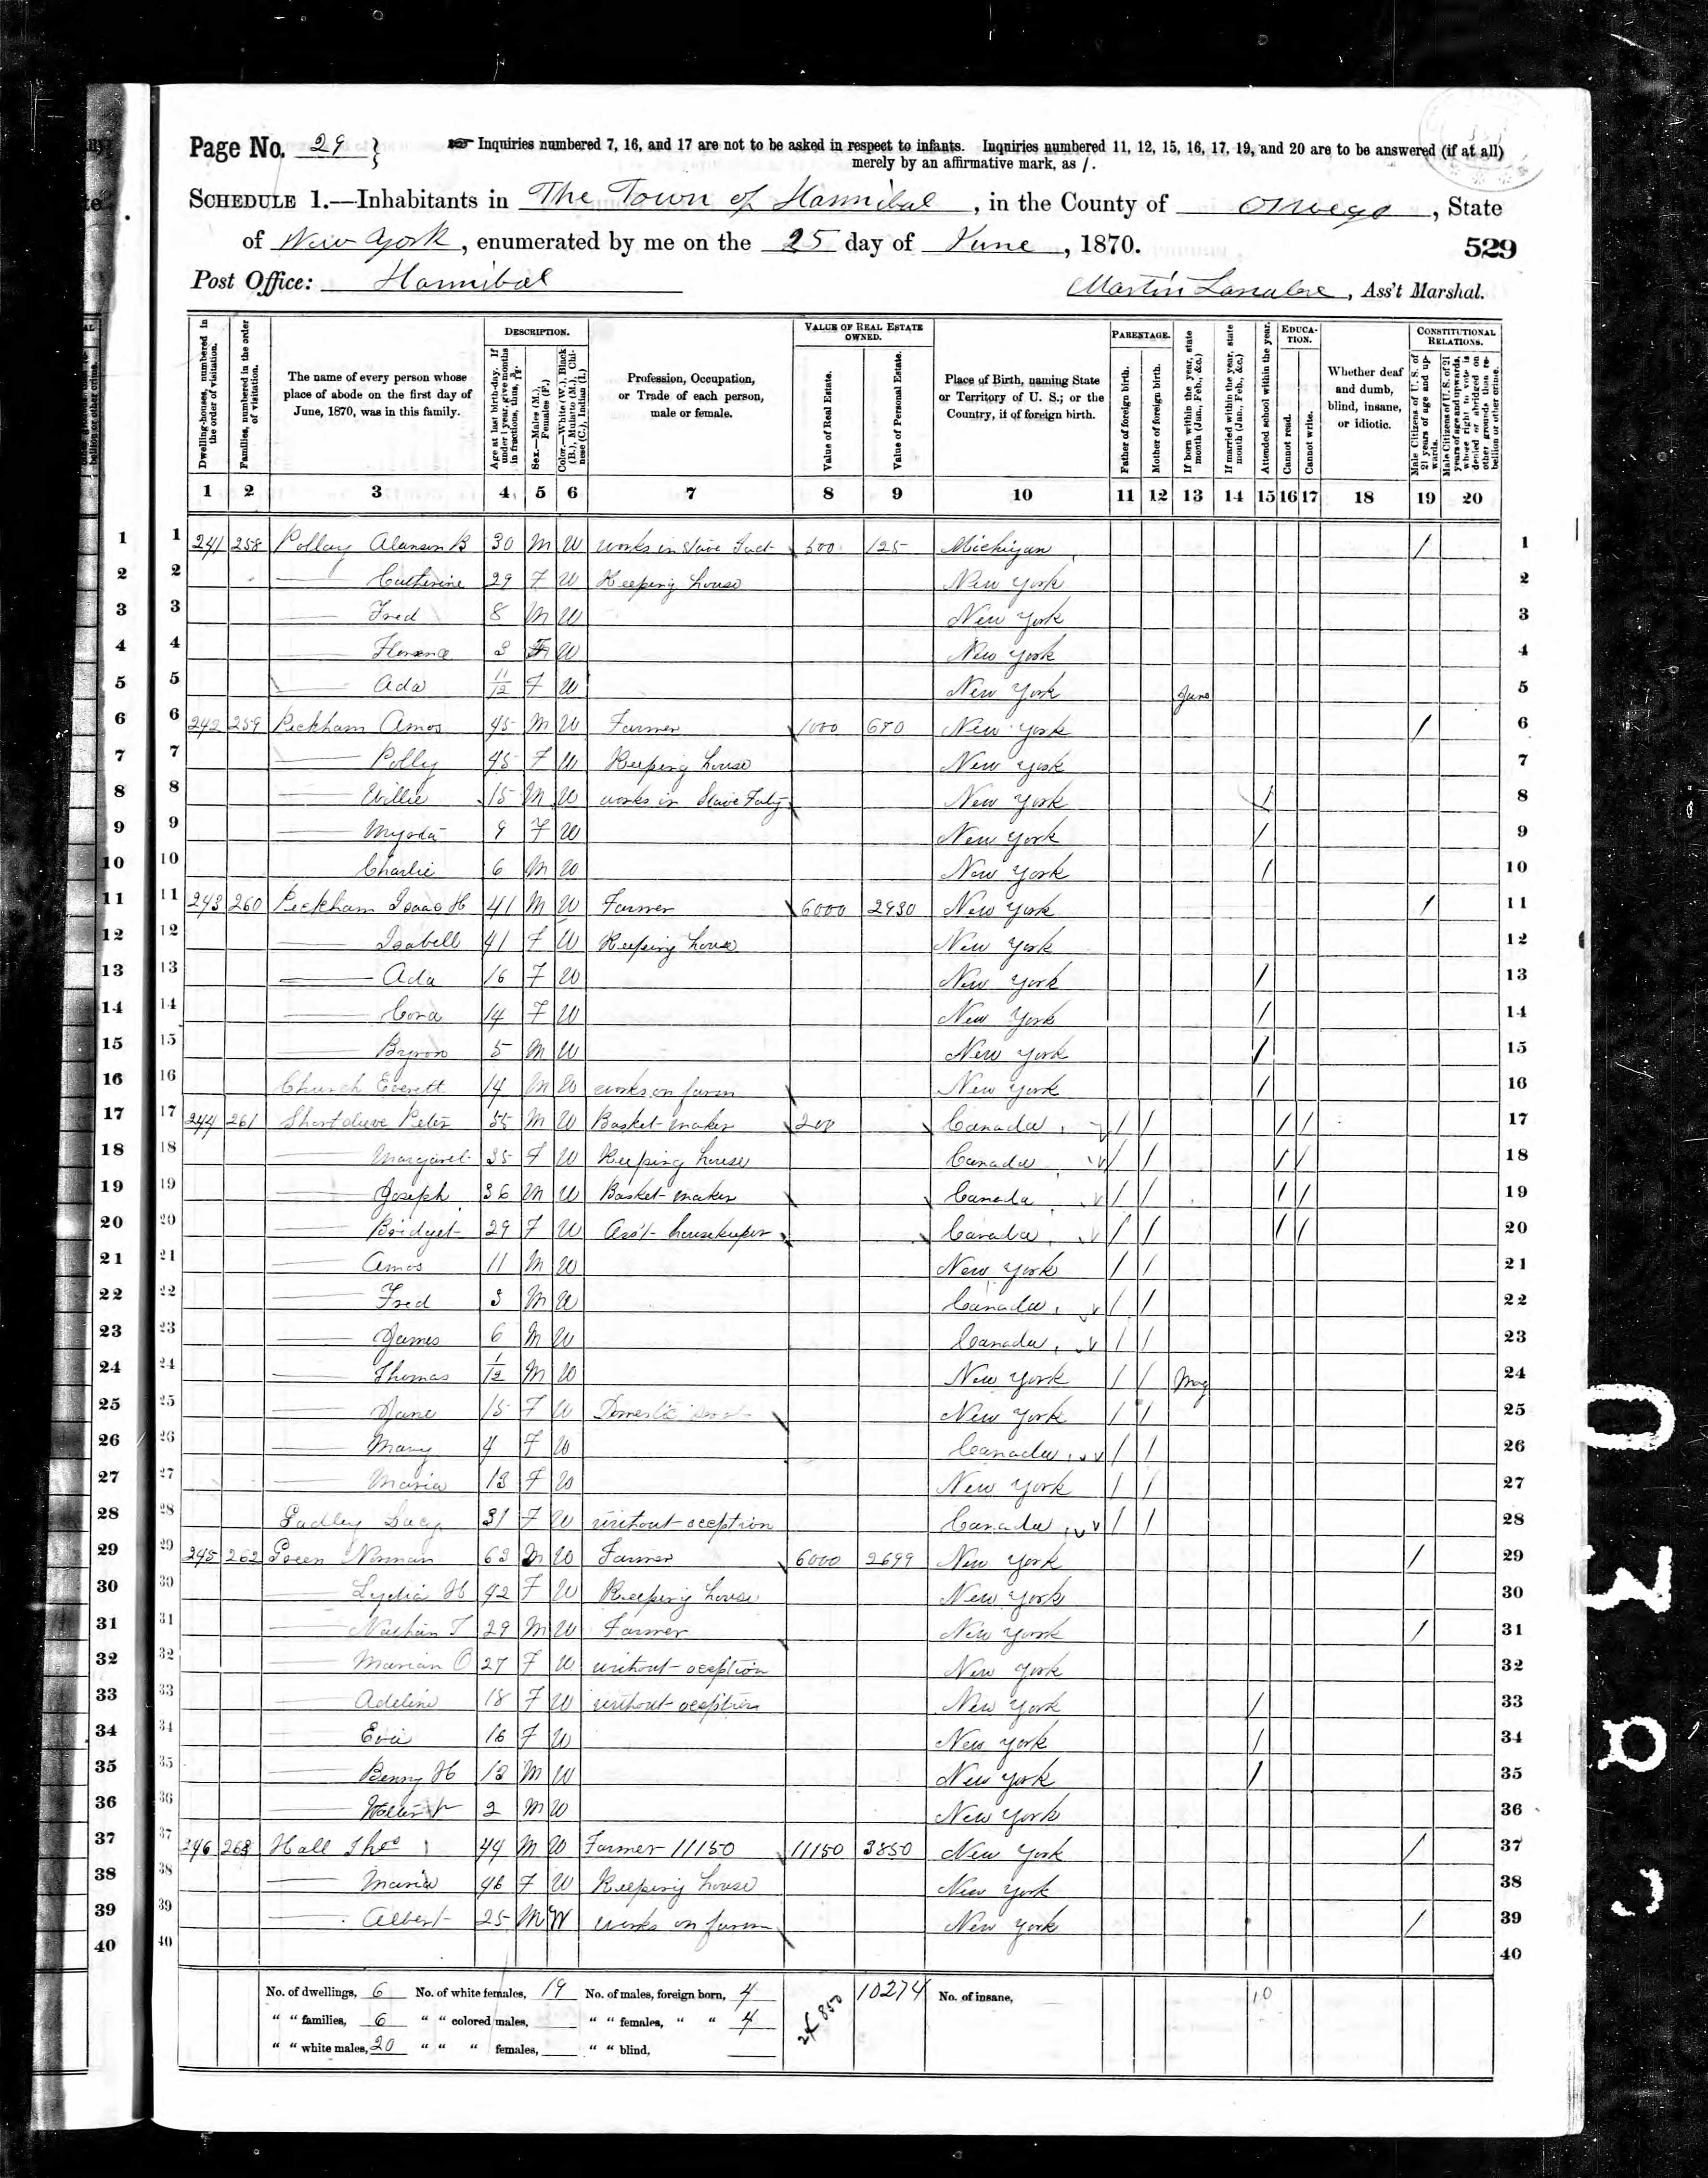 Page No. 29 }
Inquiries numbered 7, 16, and 17 are not to be asked in respect to infants. Inquiries numbered 11, 12, 15, 16, 17, 19, and 20 are to be answered (if at all)
merely by an affirmative mark, as /.
SCHEDULE 1.—Inhabitants in The Town of Hannibal, in the County of Oswego, State
of New York, enumerated by me on the 25 day of June, 1870.
529
Post Office: Hannibal
Martin, Ass't Marshal.
Dwelling-houses, numbered in the order of visitation.
Families, numbered in the order of visitation.
The name of every person whose place of abode on the first day of June, 1870, was in this family.
DESCRIPTION.
Age at last birth-day. If under 1 year, give months in fractions, thus, 3/12.
Sex.—Males (M.), Females (F.)
Color.—White (W.), Black (B.), Mulatto (M.), Chinese (C.), Indian (I.)
Profession, Occupation, or Trade of each person, male or female.
VALUE OF REAL ESTATE OWNED.
Value of Real Estate.
Value of Personal Estate.
Place of Birth, naming State or Territory of U. S.; or the Country, if of foreign birth.
PARENTAGE.
Father of foreign birth.
Mother of foreign birth.
If born within the year, state month (Jan., Feb., &c.)
If married within the year, state month (Jan., Feb., &c.)
Attended school within the year.
EDUCATION.
Cannot read.
Cannot write.
Whether deaf and dumb, blind, insane, or idiotic.
CONSTITUTIONAL RELATIONS.
Male Citizens of U. S. of 21 years of age and upwards.
Male Citizens of U. S. of 21 years of age and upwards, whose right to vote is denied or abridged on other grounds than rebellion or other crime.
1 2 3 4 5 6 7 8 9 10 11 12 13 14 15 16 17 18 19 20
1 1 241 258 Pollay Alanson B 30 M W works in Stave Fact 500 125 Michigan / 1
2 2 Catherine 29 F W Keeping house New York 2
3 3 Fred 8 M W New York 3
4 4 Florence 3 F W New York 4
5 5 Ada 11/12 F W New York June 5
6 6 242 259 Peckham Amos 45 M W Farmer 1000 680 New York / 6
7 7 Polly 45 F W Keeping house New York 7
8 8 Willie 15 M W works in Stave Facty New York / 8
9 9 9 F W New York / 9
10 10 Charlie 6 M W New York / 10
11 11 243 260 Peckham Isaac H 41 M W Farmer 6000 2930 New York / 11
12 12 Isabell 41 F W Keeping house New York 12
13 13 Ada 16 F W New York / 13
14 14 Cora 14 F W New York / 14
15 15 Byron 5 M W New York / 15
16 16 Church Everett 14 M W works on farm New York / 16
17 17 244 261 Peter 55 M W Basket maker 200 Canada / / / / 17
18 18 Margaret 35 F W Keeping house Canada / / / / 18
19 19 Joseph 36 M W Basket maker Canada / / / / 19
20 20 Bridget 29 F W Ass't housekeeper Canada / / / / 20
21 21 Amos 11 M W New York / / 21
22 22 Fred 3 M W Canada / / 22
23 23 James 6 M W Canada / / 23
24 24 Thomas 1/12 M W New York / / May 24
25 25 Jane 15 F W Domestic New York / / 25
26 26 Mary 4 F W Canada / / 26
27 27 Maria 13 F W New York / / 27
28 28 Lucy 31 F W without oceptíon Canada / / 28
29 29 245 262 Green Norman 63 M W Farmer 6000 2699 New York / 29
30 30 Lydia H 42 F W Keeping house New York 30
31 31 Nathan T 29 M W Farmer New York / 31
32 32 Marian O 27 F W without oception New York 32
33 33 Adeline 18 F W without oception New York / 33
34 34 Eva 16 F W New York / 34
35 35 Benny H 13 M W New York / 35
36 36 2 M W New York 36
37 37 246 263 Hall Thos 44 M W Farmer 11150 11150 3850 New York / 37
38 38 Maria 46 F W Keeping house New York 38
39 39 Albert 25 M W works on farm New York / 39
40 40 40
No. of dwellings, 6 No. of white females, 19 No. of males, foreign born, 4 24850 10274 No. of insane, 10
" " families, 6 " " colored males, " " females, " " 4
" " white males, 20 " " " females, " " blind,